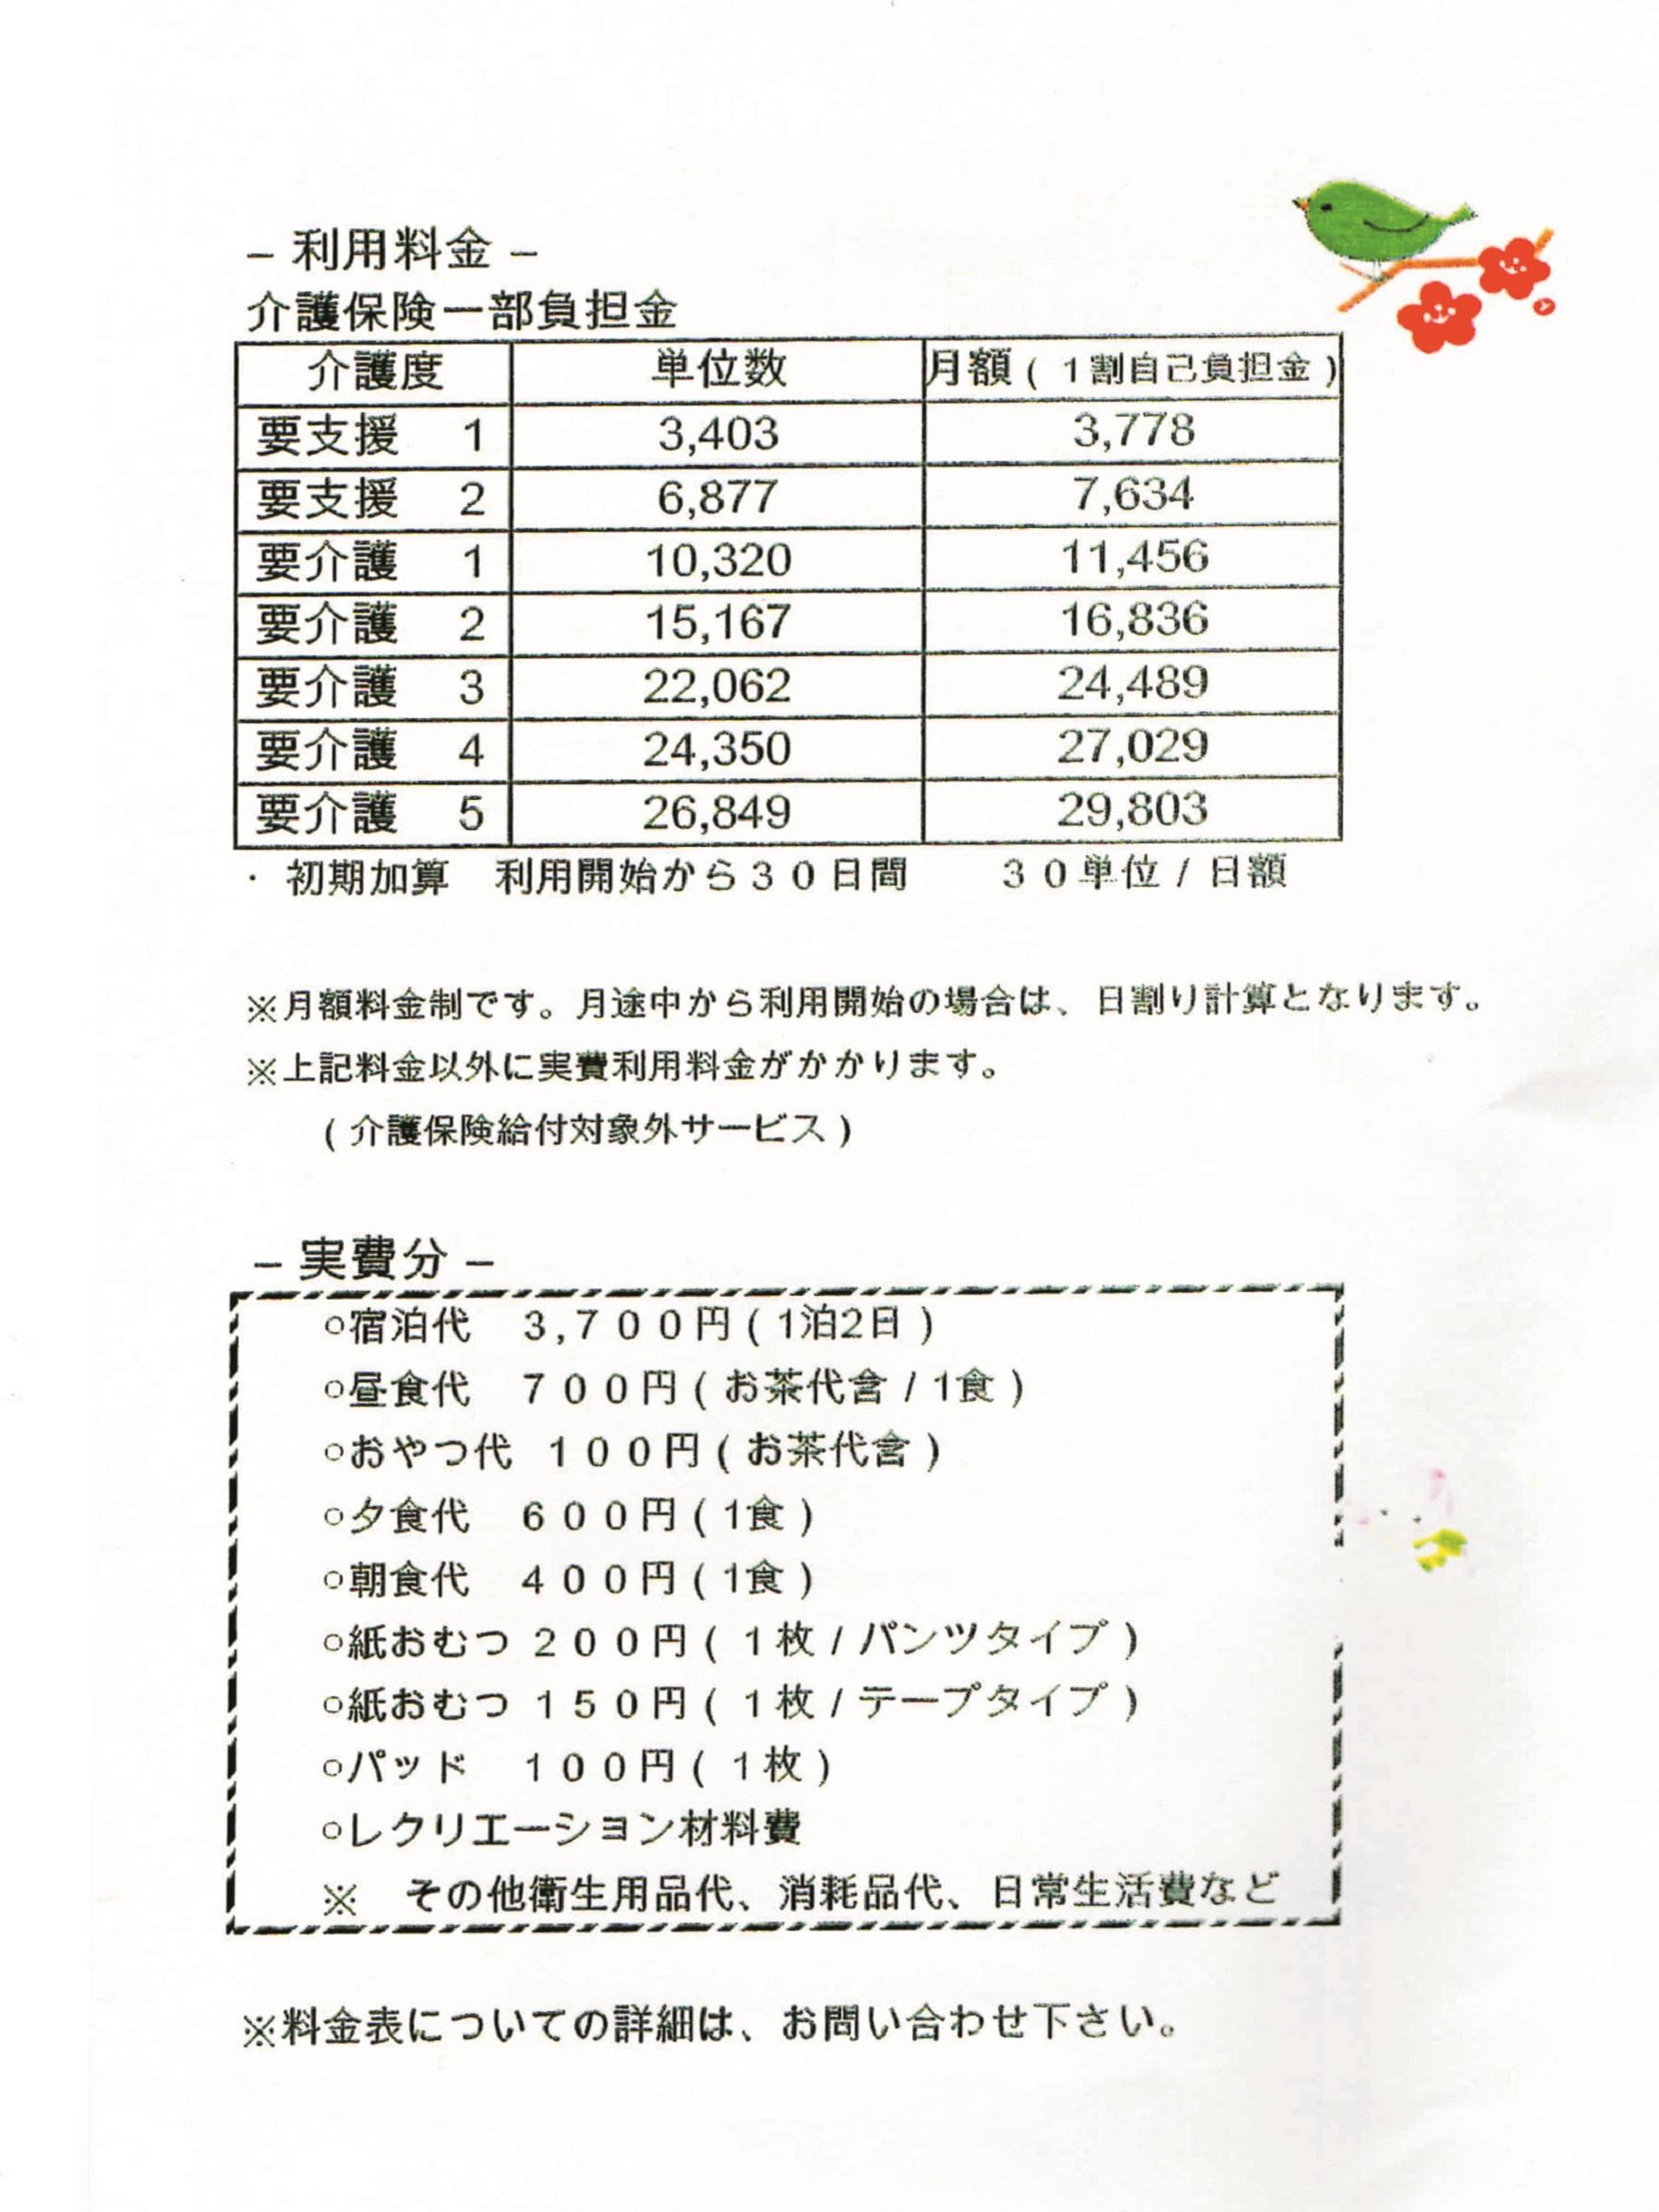 – 利用料金 –
介護保険一部負担金
介護度 単位数 月額(1割自己負担金)
要支援 1 3,403 3,778
要支援 2 6,877 7,634
要介護 1 10,320 11,456
要介護 2 15,167 16,836
要介護 3 22,062 24,489
要介護 4 24,350 27,029
要介護 5 26,849 29,803
・ 初期加算 利用開始から30日間 30単位/日額
※月額料金制です。月途中から利用開始の場合は、日割り計算となります。
※上記料金以外に実費利用料金がかかります。
(介護保険給付対象外サービス)
– 実費分 –
○宿泊代 3,700円(1泊2日)
○昼食代 700円(お茶代含/1食)
○おやつ代 100円(お茶代含)
○夕食代 600円(1食)
○朝食代 400円(1食)
○紙おむつ 200円(1枚/パンツタイプ)
○紙おむつ 150円(1枚/テープタイプ)
○パッド 100円(1枚)
○レクリエーション材料費
※ その他衛生用品代、消耗品代、日常生活費など
※料金表についての詳細は、お問い合わせ下さい。